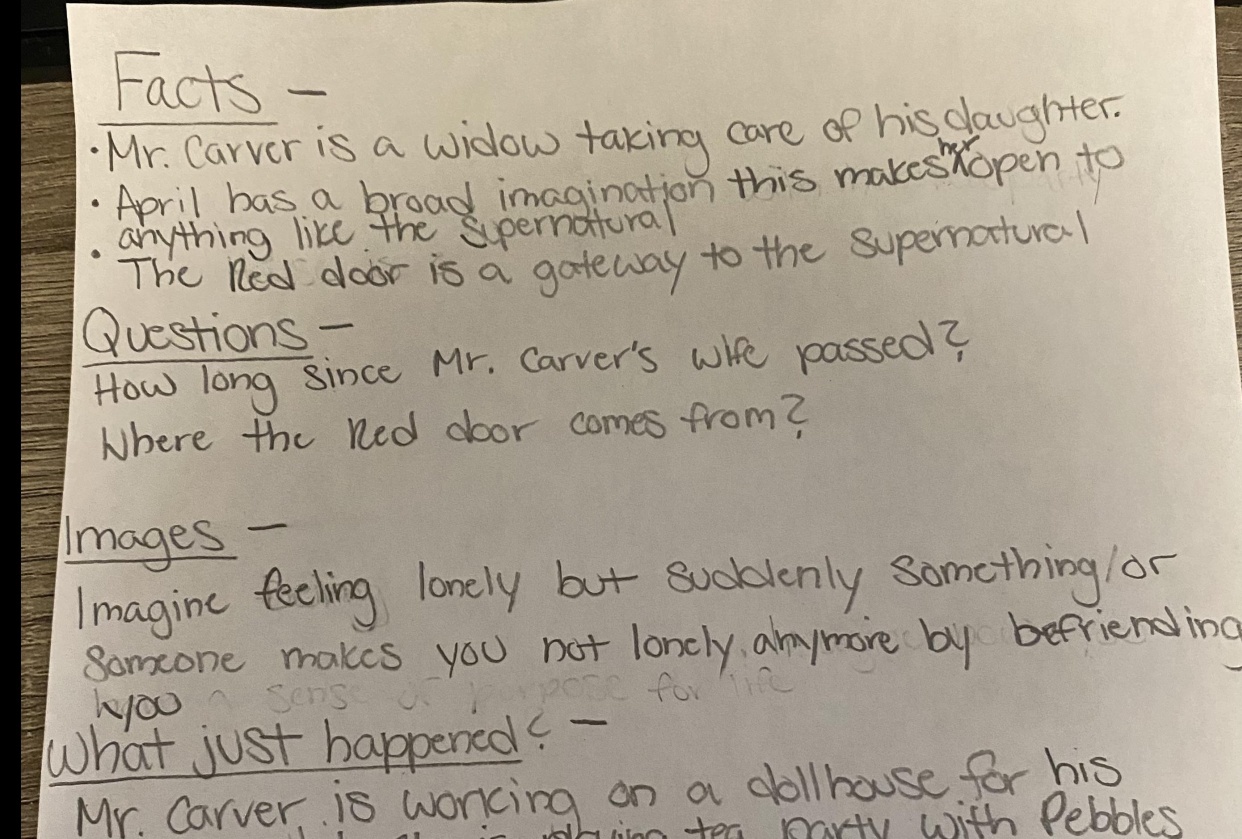 Facts -
• Mr. Carver is a widow taking care of his daughter.
• April has a broad imagination this makes her open to
• anything like the supernatural
The Red door is a gateway to the supernatural
Questions -
How long since Mr. Carver's wife passed?
Where the Red door comes from?
Images -
Imagine feeling lonely but suddenly something/or
Someone makes you not lonely anymore by befriending
you a sense of purpose for life
What just happened? -
Mr. Carver is working on a dollhouse for his
playing tea party with Pebbles